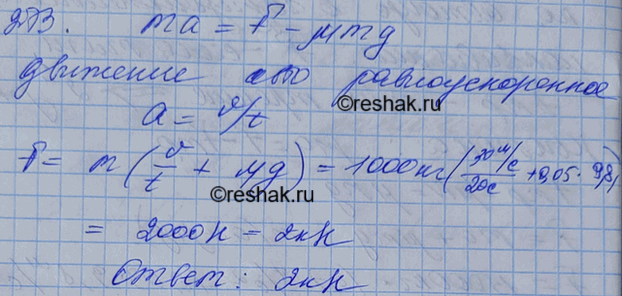 273. ma = F - μmg
движение равноускоренное
©reshak.ru
a = v/t
F = m(v/t + μg) = 1000кг(30м/с/20с + 0,05 · 9,8)
©reshak.ru
= 2000Н = 2кН
Ответ: 2кН